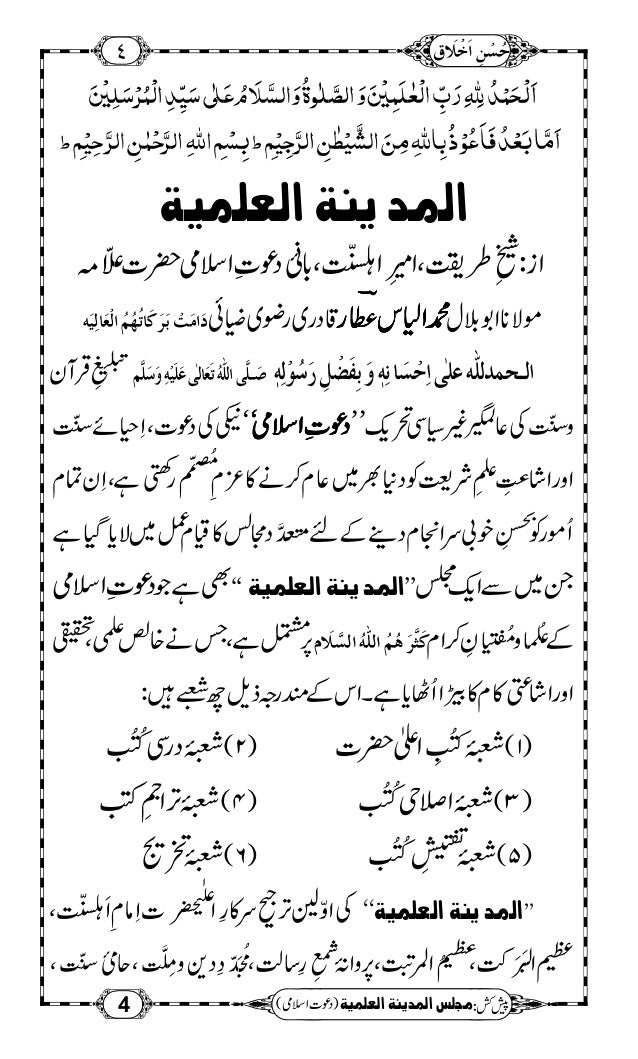 حُسْنِ اَخْلَاق
٤
اَلْحَمْدُ لِلّٰهِ رَبِّ الْعٰلَمِیْنَ وَ الصَّلٰوةُ وَالسَّلَامُ عَلٰی سَیِّدِ الْمُرْسَلِیْنَ
اَمَّا بَعْدُ فَاَعُوْذُ بِاللّٰهِ مِنَ الشَّیْطٰنِ الرَّجِیْمِ ط بِسْمِ اللّٰهِ الرَّحْمٰنِ الرَّحِیْمِ ط
المد ینة العلمیة
از: شیخِ طریقت، امیرِ اہلسنّت، بانیٔ دعوتِ اسلامی حضرت علّامہ
مولانا ابوبلال محمد الیاس عطار قادری رضوی ضیائی دَامَتْ بَرَکَاتُهُمُ الْعَالِیَه
الحمدللّٰه علٰی اِحْسَا نِهٖ وَ بِفَضْلِ رَسُوْلِهٖ صَلَّی اللّٰهُ تَعَالٰی عَلَیْهِ وَسَلَّم تبلیغِ قرآن
وسنّت کی عالمگیر غیر سیاسی تحریک ’’دعوتِ اسلامی‘‘ نیکی کی دعوت، اِحیائے سنّت
اور اشاعتِ علمِ شریعت کو دنیا بھر میں عام کرنے کا عزمِ مُصمّم رکھتی ہے، اِن تمام
اُمور کو بحسنِ خوبی سر انجام دینے کے لئے متعدَّد مجالس کا قیام عمل میں لایا گیا ہے
جن میں سے ایک مجلس ’’المد ینة العلمیة‘‘ بھی ہے جو دعوتِ اسلامی
کے عُلما و مُفتیانِ کرام کَثَّرَ هُمُ اللّٰهُ السَّلَام پر مشتمل ہے، جس نے خالص علمی، تحقیقی
اور اشاعتی کام کا بیڑا اُٹھایا ہے۔ اس کے مندرجہ ذیل چھ شعبے ہیں:
(۱) شعبۂ کتُبِ اعلیٰ حضرت (۲) شعبۂ درسی کُتُب
(۳) شعبۂ اصلاحی کُتُب (۴) شعبۂ تراجمِ کتب
(۵) شعبۂ تفتیشِ کُتُب (۶) شعبۂ تخریج
’’المد ینة العلمیة‘‘ کی اوّلین ترجیح سرکارِ اعلٰیحضرت اِمامِ اَہلسنّت،
عظیم البَرَکت، عظیم المرتبت، پروانۂ شمعِ رِسالت، مُجَدِّدِ دین و مِلَّت، حامیٔ سنّت،
پیش کش: مجلس المدینة العلمیة (دعوت اسلامی)
4